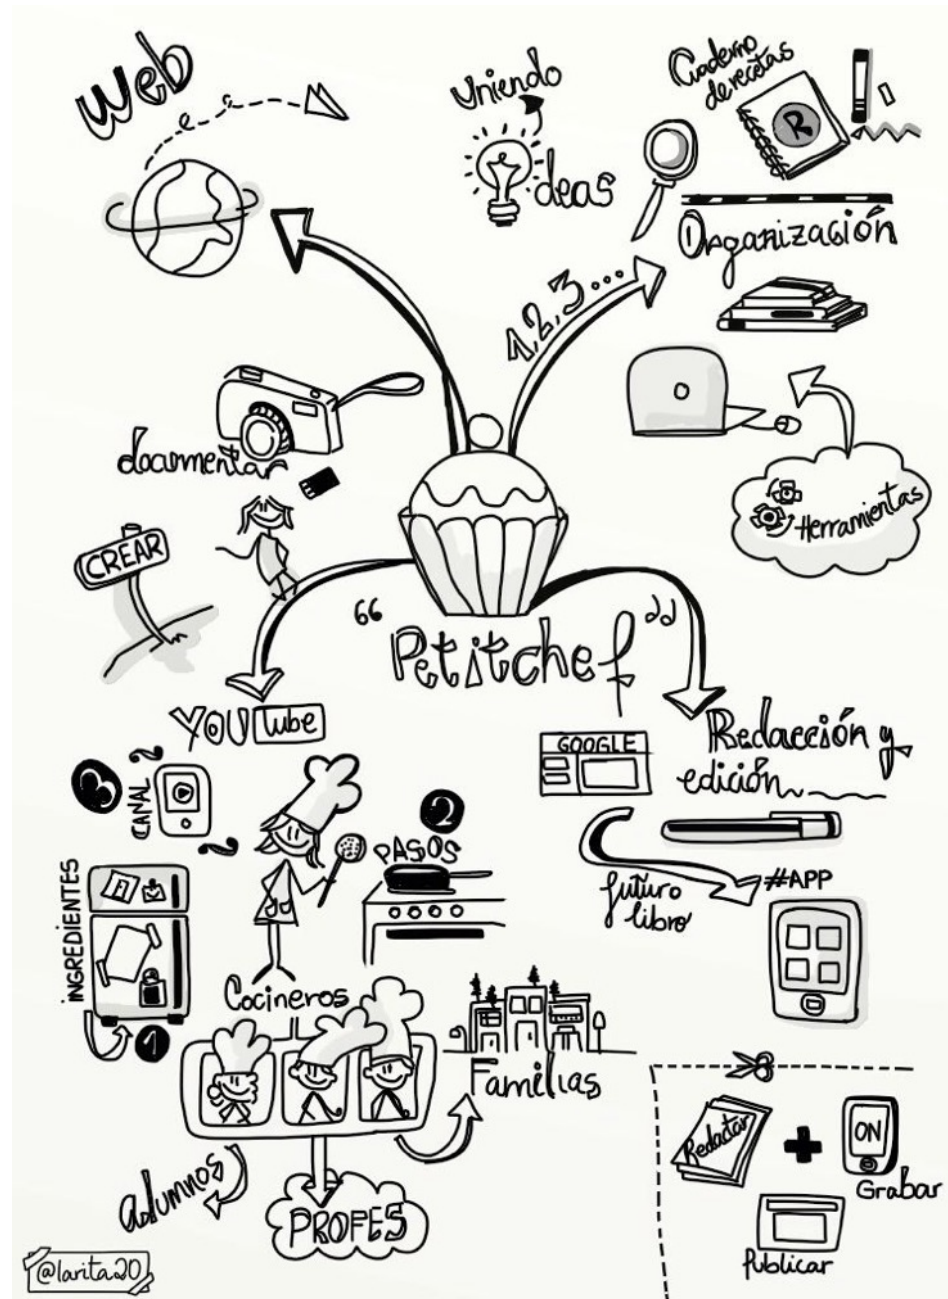 Web
Uniendo
Ideas
Cuaderno
de recetas
R
Organización
1,2,3...
Herramientas
documentar
CREAR
"Petitchef"
YOUTube
3
CANAL
INGREDIENTES
1
2
PASOS
Cocineros
Familias
alumnos
PROFES
GOOGLE
Redacción y
edición
futuro
libro
#APP
Redactar
+
ON
Grabar
Publicar
@larita20